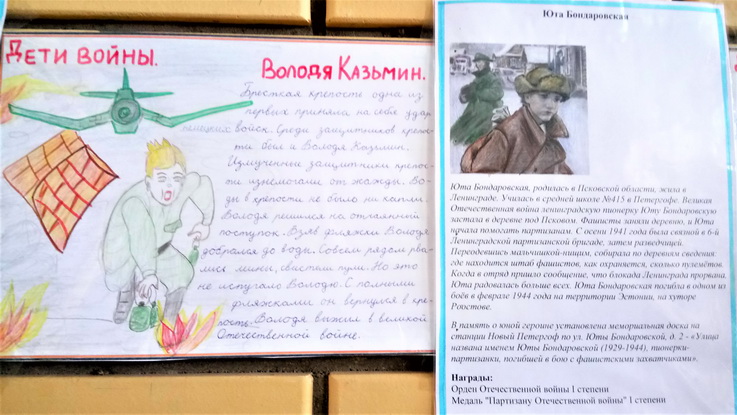 Дети войны.
Володя Казьмин.
Брестская крепость одна из
первых приняла на себя удар
немецких войск. Среди защитников крепос-
ти был и Володя Казьмин.
Измученные защитники крепос-
ти изнемогали от жажды. Во-
ды в крепости не было ни капли.
Володя решился на отчаянный
поступок. Взяв фляжки Володя
добрался до воды. Совсем рядом рва-
лись мины, свистели пули. Но это
не испугало Володю. С полными
фляжками он вернулся в кре-
пость. Володя выжил в великой
Отечественной войне.
Юта Бондаровская
Юта Бондаровская, родилась в Псковской области, жила в
Ленинграде. Училась в средней школе №415 в Петергофе. Великая
Отечественная война ленинградскую пионерку Юту Бондаровскую
застала в деревне под Псковом. Фашисты заняли деревню, и Юта
начала помогать партизанам. С осени 1941 года была связной в 6-й
Ленинградской партизанской бригаде, затем разведчицей.
Переодевшись мальчишкой-нищим, собирала по деревням сведения:
где находится штаб фашистов, как охраняется, сколько пулемётов.
Когда в отряд пришло сообщение, что блокада Ленинграда прорвана.
Юта радовалась больше всех. Юта Бондаровская погибла в одном из
боёв в феврале 1944 года на территории Эстонии, на хуторе
Роостове.
В память о юной героине установлена мемориальная доска на
станции Новый Петергоф по ул. Юты Бондаровской, д. 2 - «Улица
названа именем Юты Бондаровской (1929-1944), пионерки-
партизанки, погибшей в бою с фашистскими захватчиками».
Награды:
Орден Отечественной войны I степени
Медаль "Партизану Отечественной войны" I степени